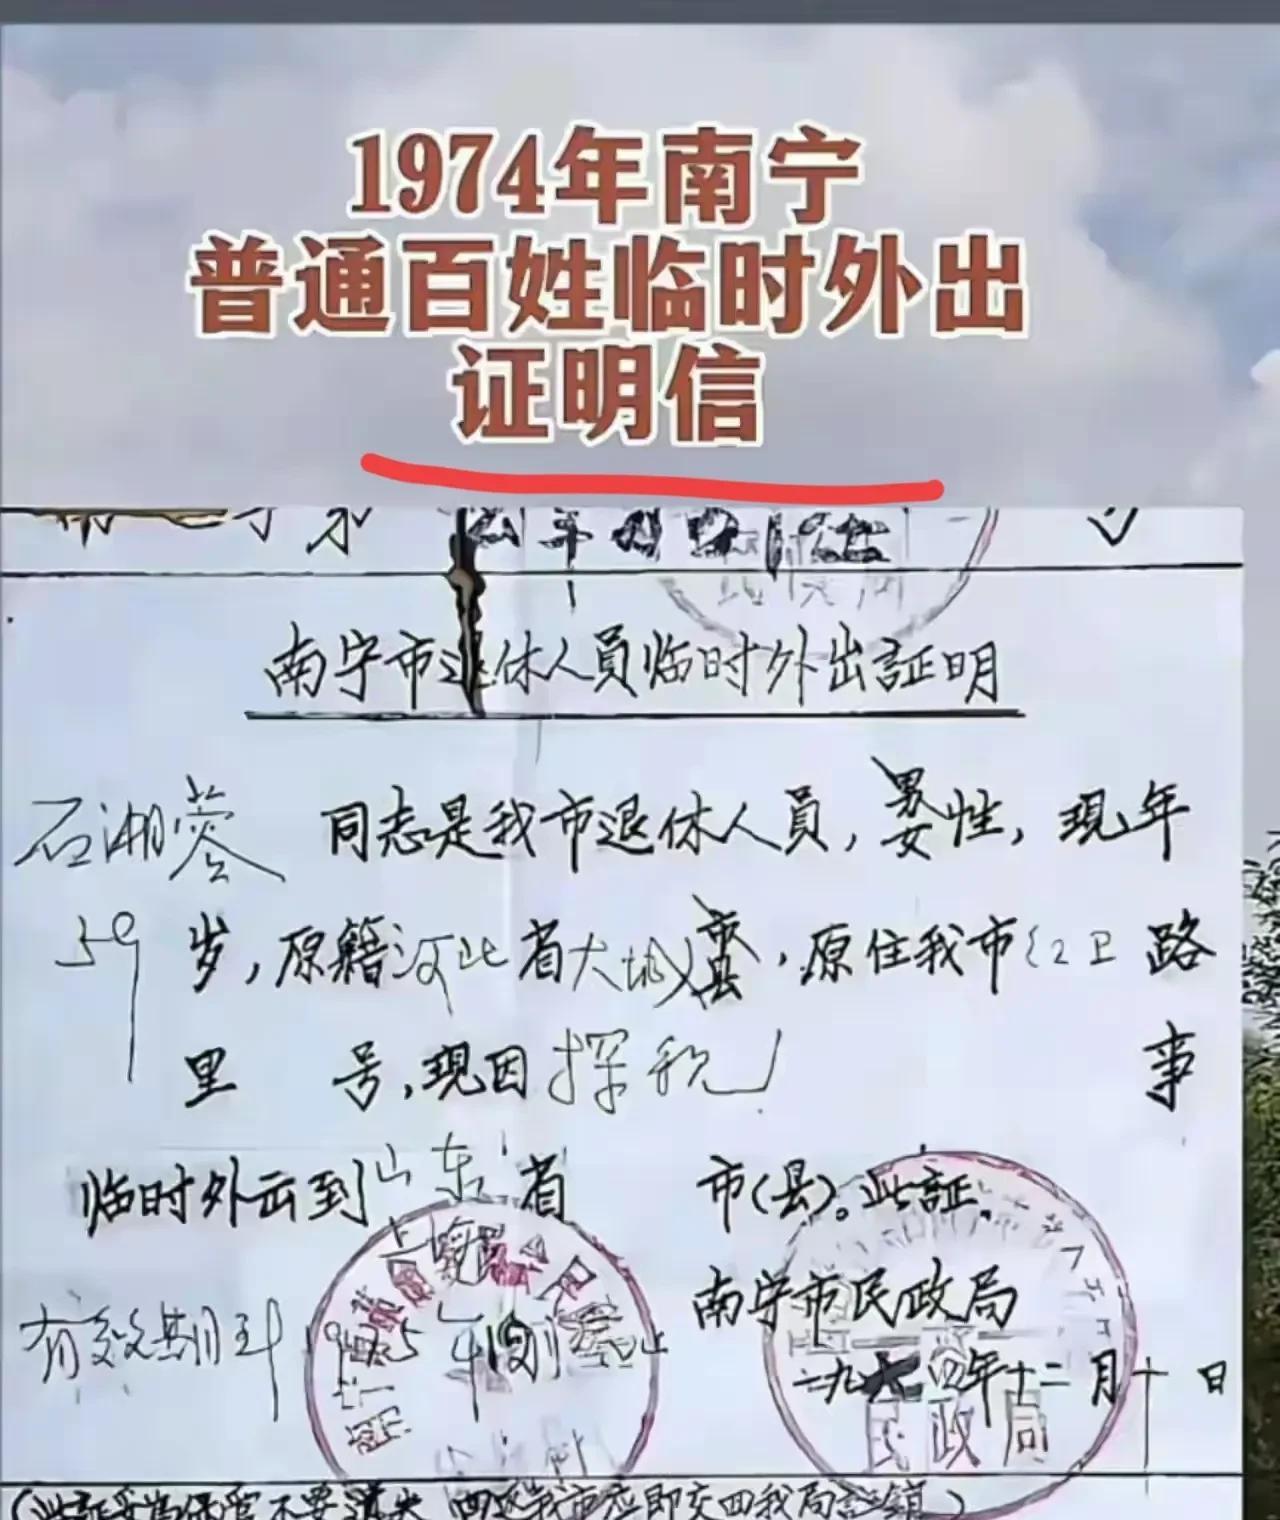 1974年南宁
普通百姓临时外出
证明信
南宁市退休人员临时外出証明
石湘蓉 同志是我市退休人员,男女性,现年
59 岁,原籍河北省大城市县,原住我市红卫路
里 号,现因探亲 事
临时外出到山东省 市(县)。此証。
南宁市民政局
有效期到1975年 止
一九 四年十二月十日
民政局
(此証妥为保管不要遗失 回 我市应即交回我局註銷)